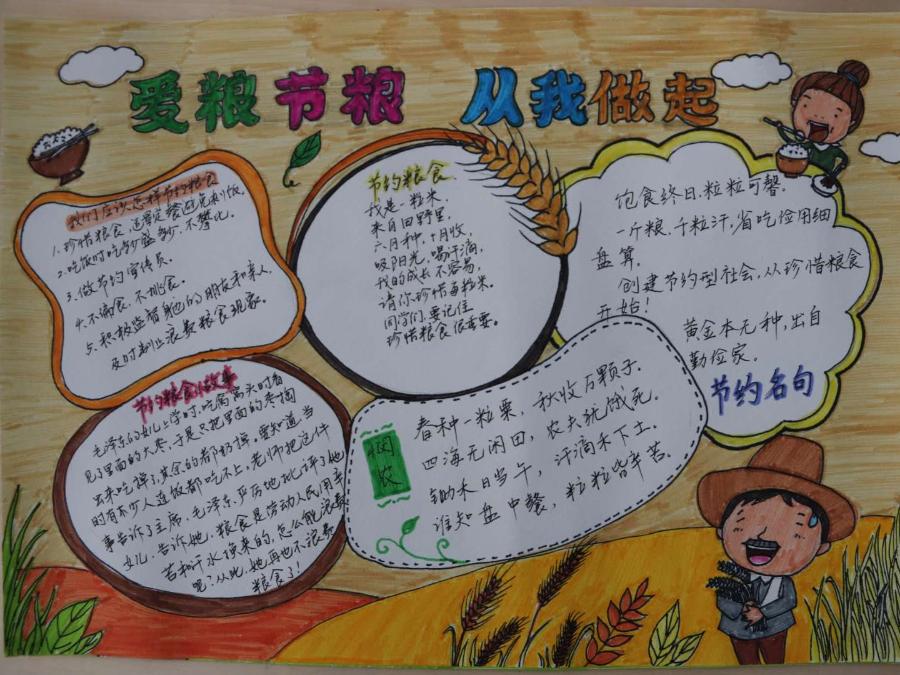 爱粮节粮 从我做起
我们应该怎样节约粮食
1.珍惜粮食,适量定餐,避免剩饭。
2.吃饭时吃多少盛多少,不攀比。
3.做节约宣传员。
4.不偏食,不挑食。
5.积极监督身他的朋友和亲人,
及时制止浪费粮食现象。
节约粮食
我是一粒米,
来自田野里,
六月种,十月收,
吸阳光,喝汗滴,
我的成长不容易,
请你珍惜每粒米。
同学们,要记住,
珍惜粮食很重要。
饱食终日,粒粒可馨。
一斤粮,千粒汗,省吃俭用细
盘算。
创建节约型社会,从珍惜粮食
开始!
黄金本无种,出自
勤俭家。
节约名句
节约粮食小故事
毛泽东的女儿上学时,吃窝窝头时看
见了里面的大枣,于是只把里面的枣掏
出来吃掉了,其余的都扔掉,要知道,当
时有不少人连饭都吃不上,老师把这件
事告诉了主席,毛泽东严厉地批评了她
女儿,告诉她,粮食是劳动人民用辛
苦和汗水换来的,怎么能浪费
呢?从此,她再也不浪费
粮食了!
悯农
春种一粒粟,秋收万颗子。
四海无闲田,农夫犹饿死。
锄禾日当午,汗滴禾下土。
谁知盘中餐,粒粒皆辛苦。